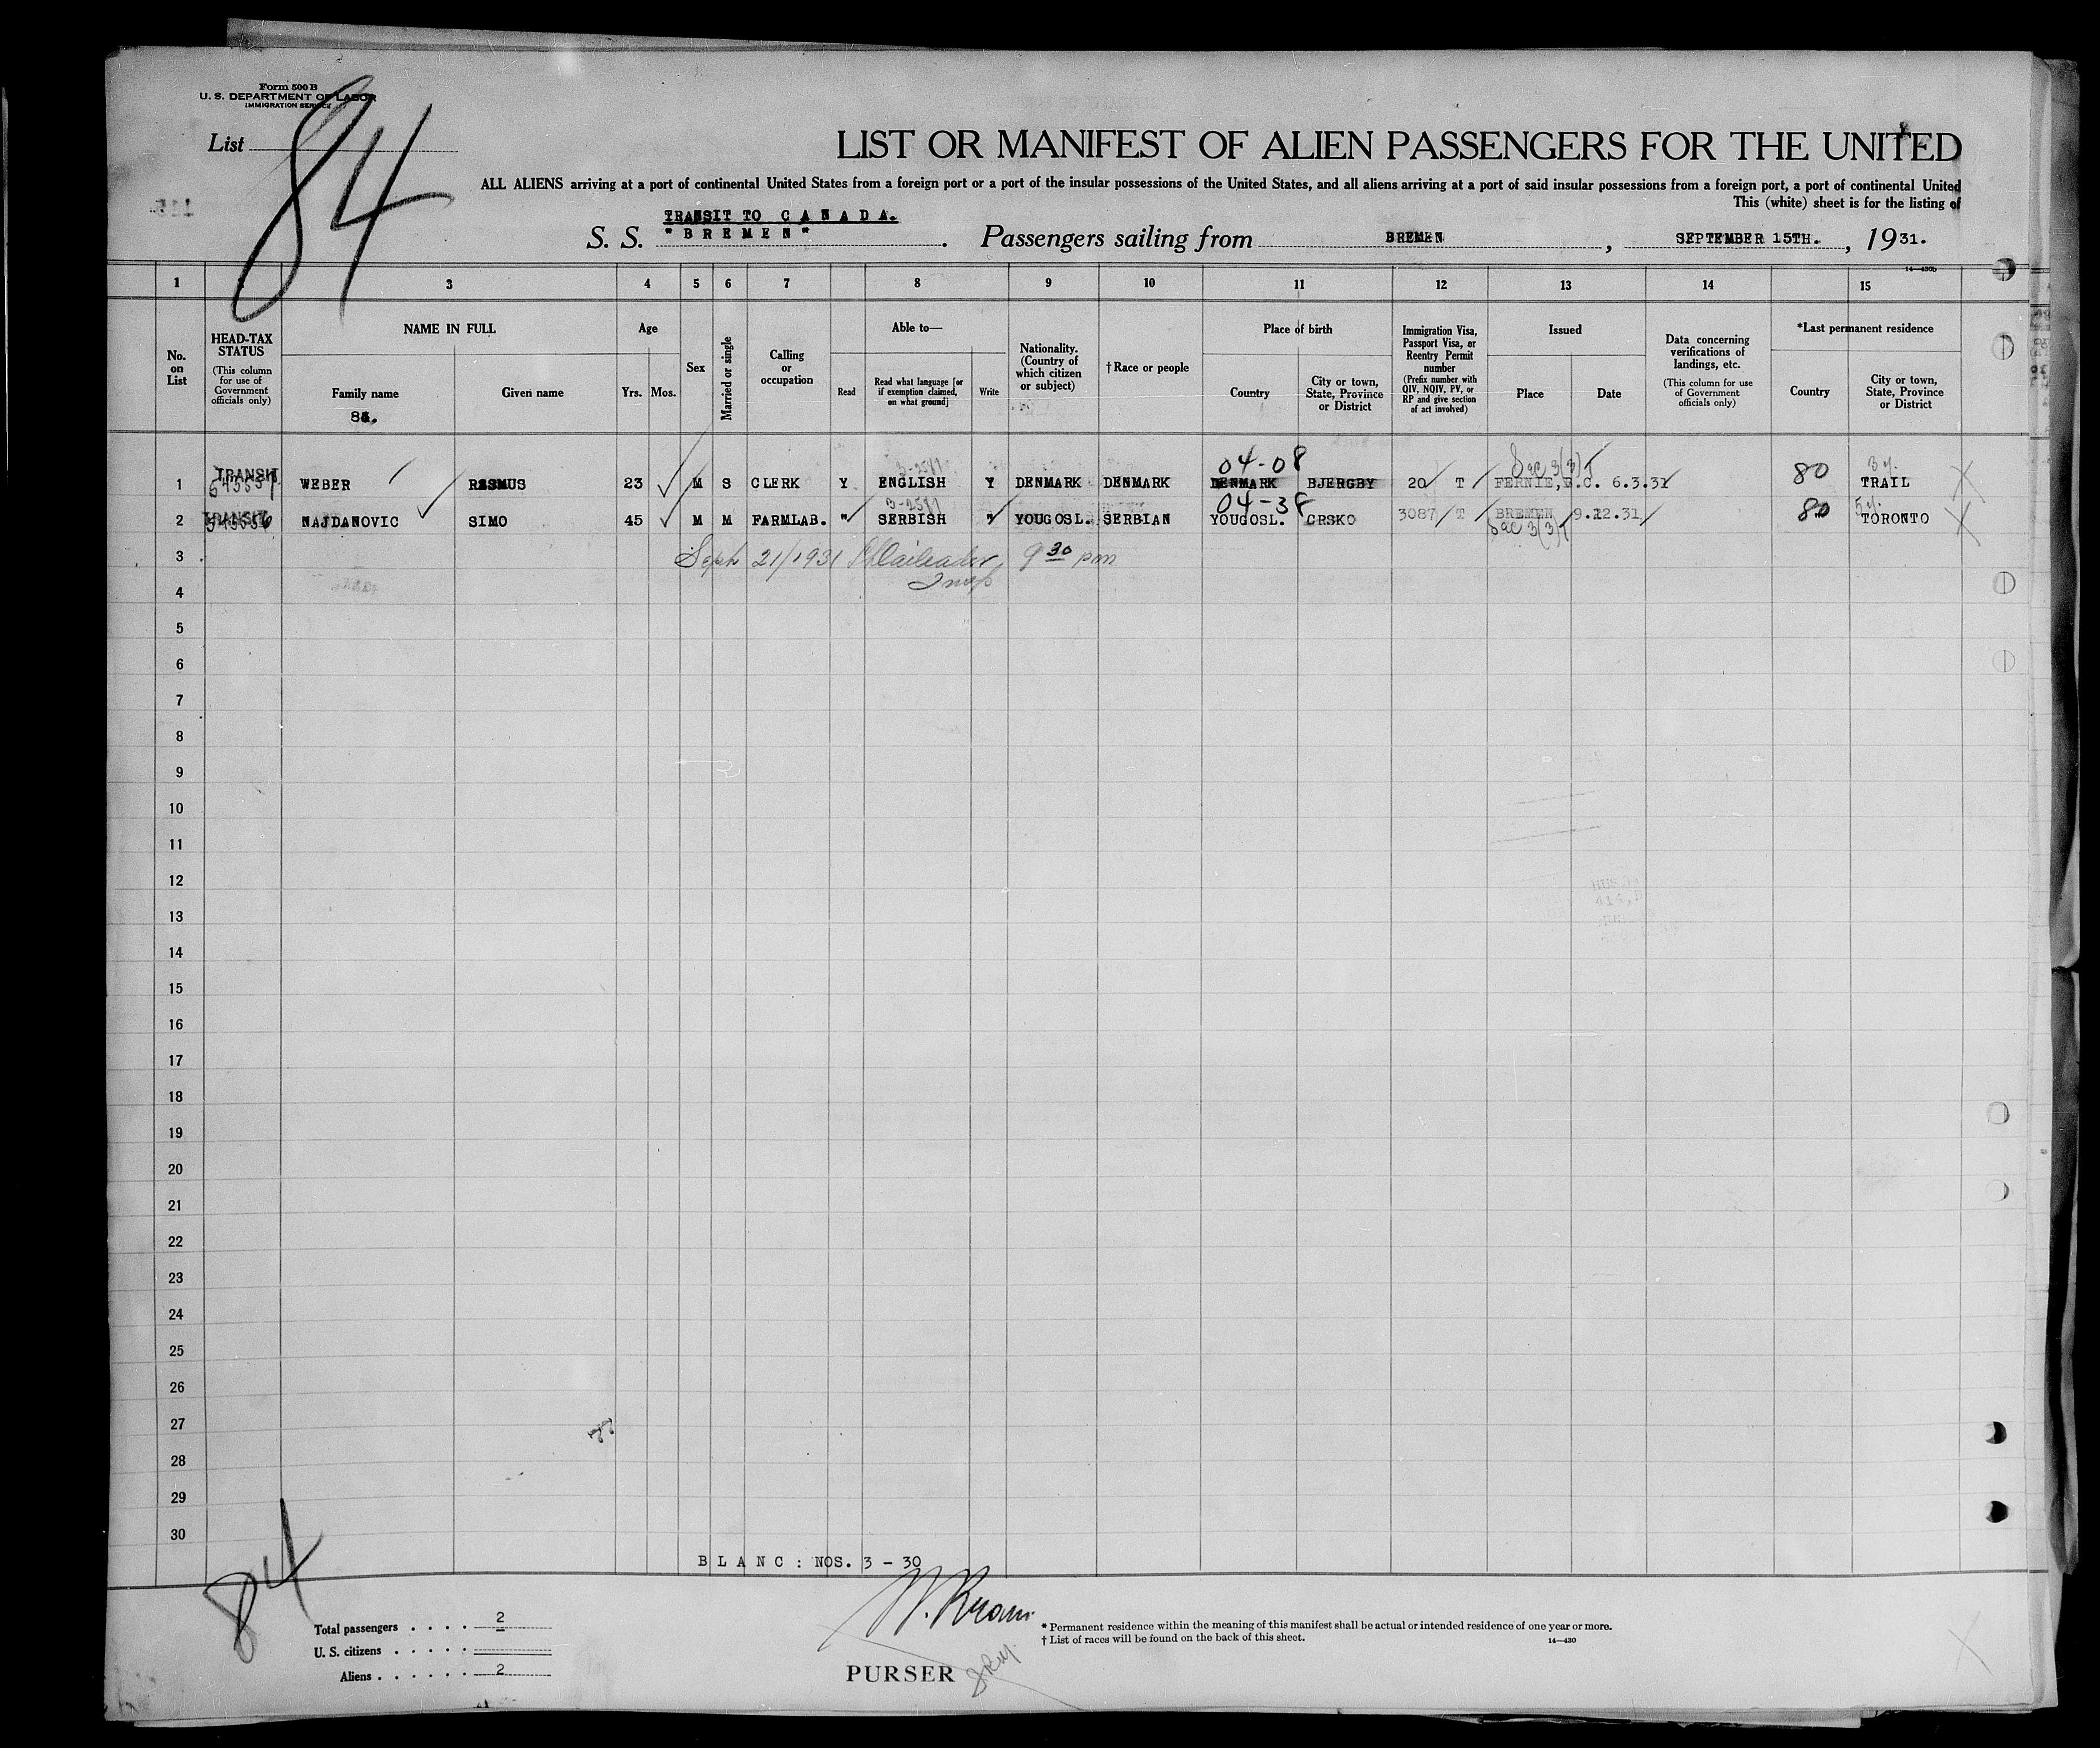 Form 500 B
U. S. DEPARTMENT OF LABOR
IMMIGRATION SERVICE
84
List
LIST OR MANIFEST OF ALIEN PASSENGERS FOR THE UNITED
ALL ALIENS arriving at a port of continental United States from a foreign port or a port of the insular possessions of the United States, and all aliens arriving at a port of said insular possessions from a foreign port, a port of continental United
This (white) sheet is for the listing of
TRANSIT TO C A N A D A.
S. S. "B R E M E N". Passengers sailing from BREMEN, SEPTEMBER 15TH., 1931.
14—430b
1 3 4 5 6 7 8 9 10 11 12 13 14 15
No. on List
HEAD-TAX STATUS
(This column for use of Government officials only)
NAME IN FULL
Family name
Given name
84.
Age
Yrs. Mos.
Sex
Married or single
Calling or occupation
Able to—
Read
Read what language [or if exemption claimed, on what ground]
Write
Nationality. (Country of which citizen or subject)
†Race or people
Place of birth
Country
City or town, State, Province or District
Immigration Visa, Passport Visa, or Reentry Permit number
(Prefix number with QIV, NQIV, PV, or RP and give section of act involved)
Issued
Place
Date
Data concerning verifications of landings, etc.
(This column for use of Government officials only)
*Last permanent residence
Country
City or town, State, Province or District
04-08 Sec 3(3)
1 TRANSIT WEBER RASMUS 23 M S CLERK Y ENGLISH Y DENMARK DENMARK DENMARK BJERGBY 20 T FERNIE, B.C. 6.3.31 80 TRAIL
04-38
2 TRANSIT NAJDANOVIC SIMO 45 M M FARMLAB. " SERBISH " YOUGOSL. SERBIAN YOUGOSL. CRSKO 3087 T BREMEN 80 TORONTO
Sec 3(3)
3 Sept 21/1931 9 30 pm
Insp
4
5
6
7
8
9
10
11
12
13
14
15
16
17
18
19
20
21
22
23
24
25
26
27
28
29
30
B L A N C : NOS. 3 - 30
84
Total passengers . . . . 2
U. S. citizens . . . . .
Aliens . . . . . . 2
PURSER
* Permanent residence within the meaning of this manifest shall be actual or intended residence of one year or more.
† List of races will be found on the back of this sheet.
14—430